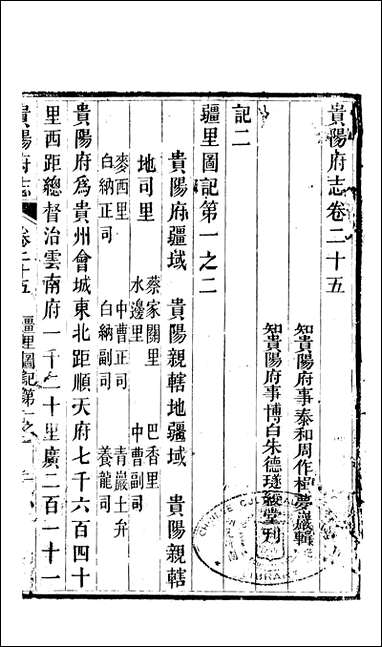 貴陽府志卷二十五
知貴陽府事泰和周作楫夢巖輯
知貴陽府事博白朱德璲綬堂刊
記二
疆里圖記第一之二
貴陽府疆域　貴陽親轄地疆域　貴陽親轄
地司里　蔡家關里　巴香里
水邊里　中曹副司
麥西里　中曹正司　青巖土弁
白納正司　白納副司　養龍司
貴陽府爲貴州會城東北距順天府七千六百四十
里西距總督治雲南府一千二十里廣二百一十一
貴陽府志　卷二十五　疆里圖記第一之
CHINESE
LIBRARY